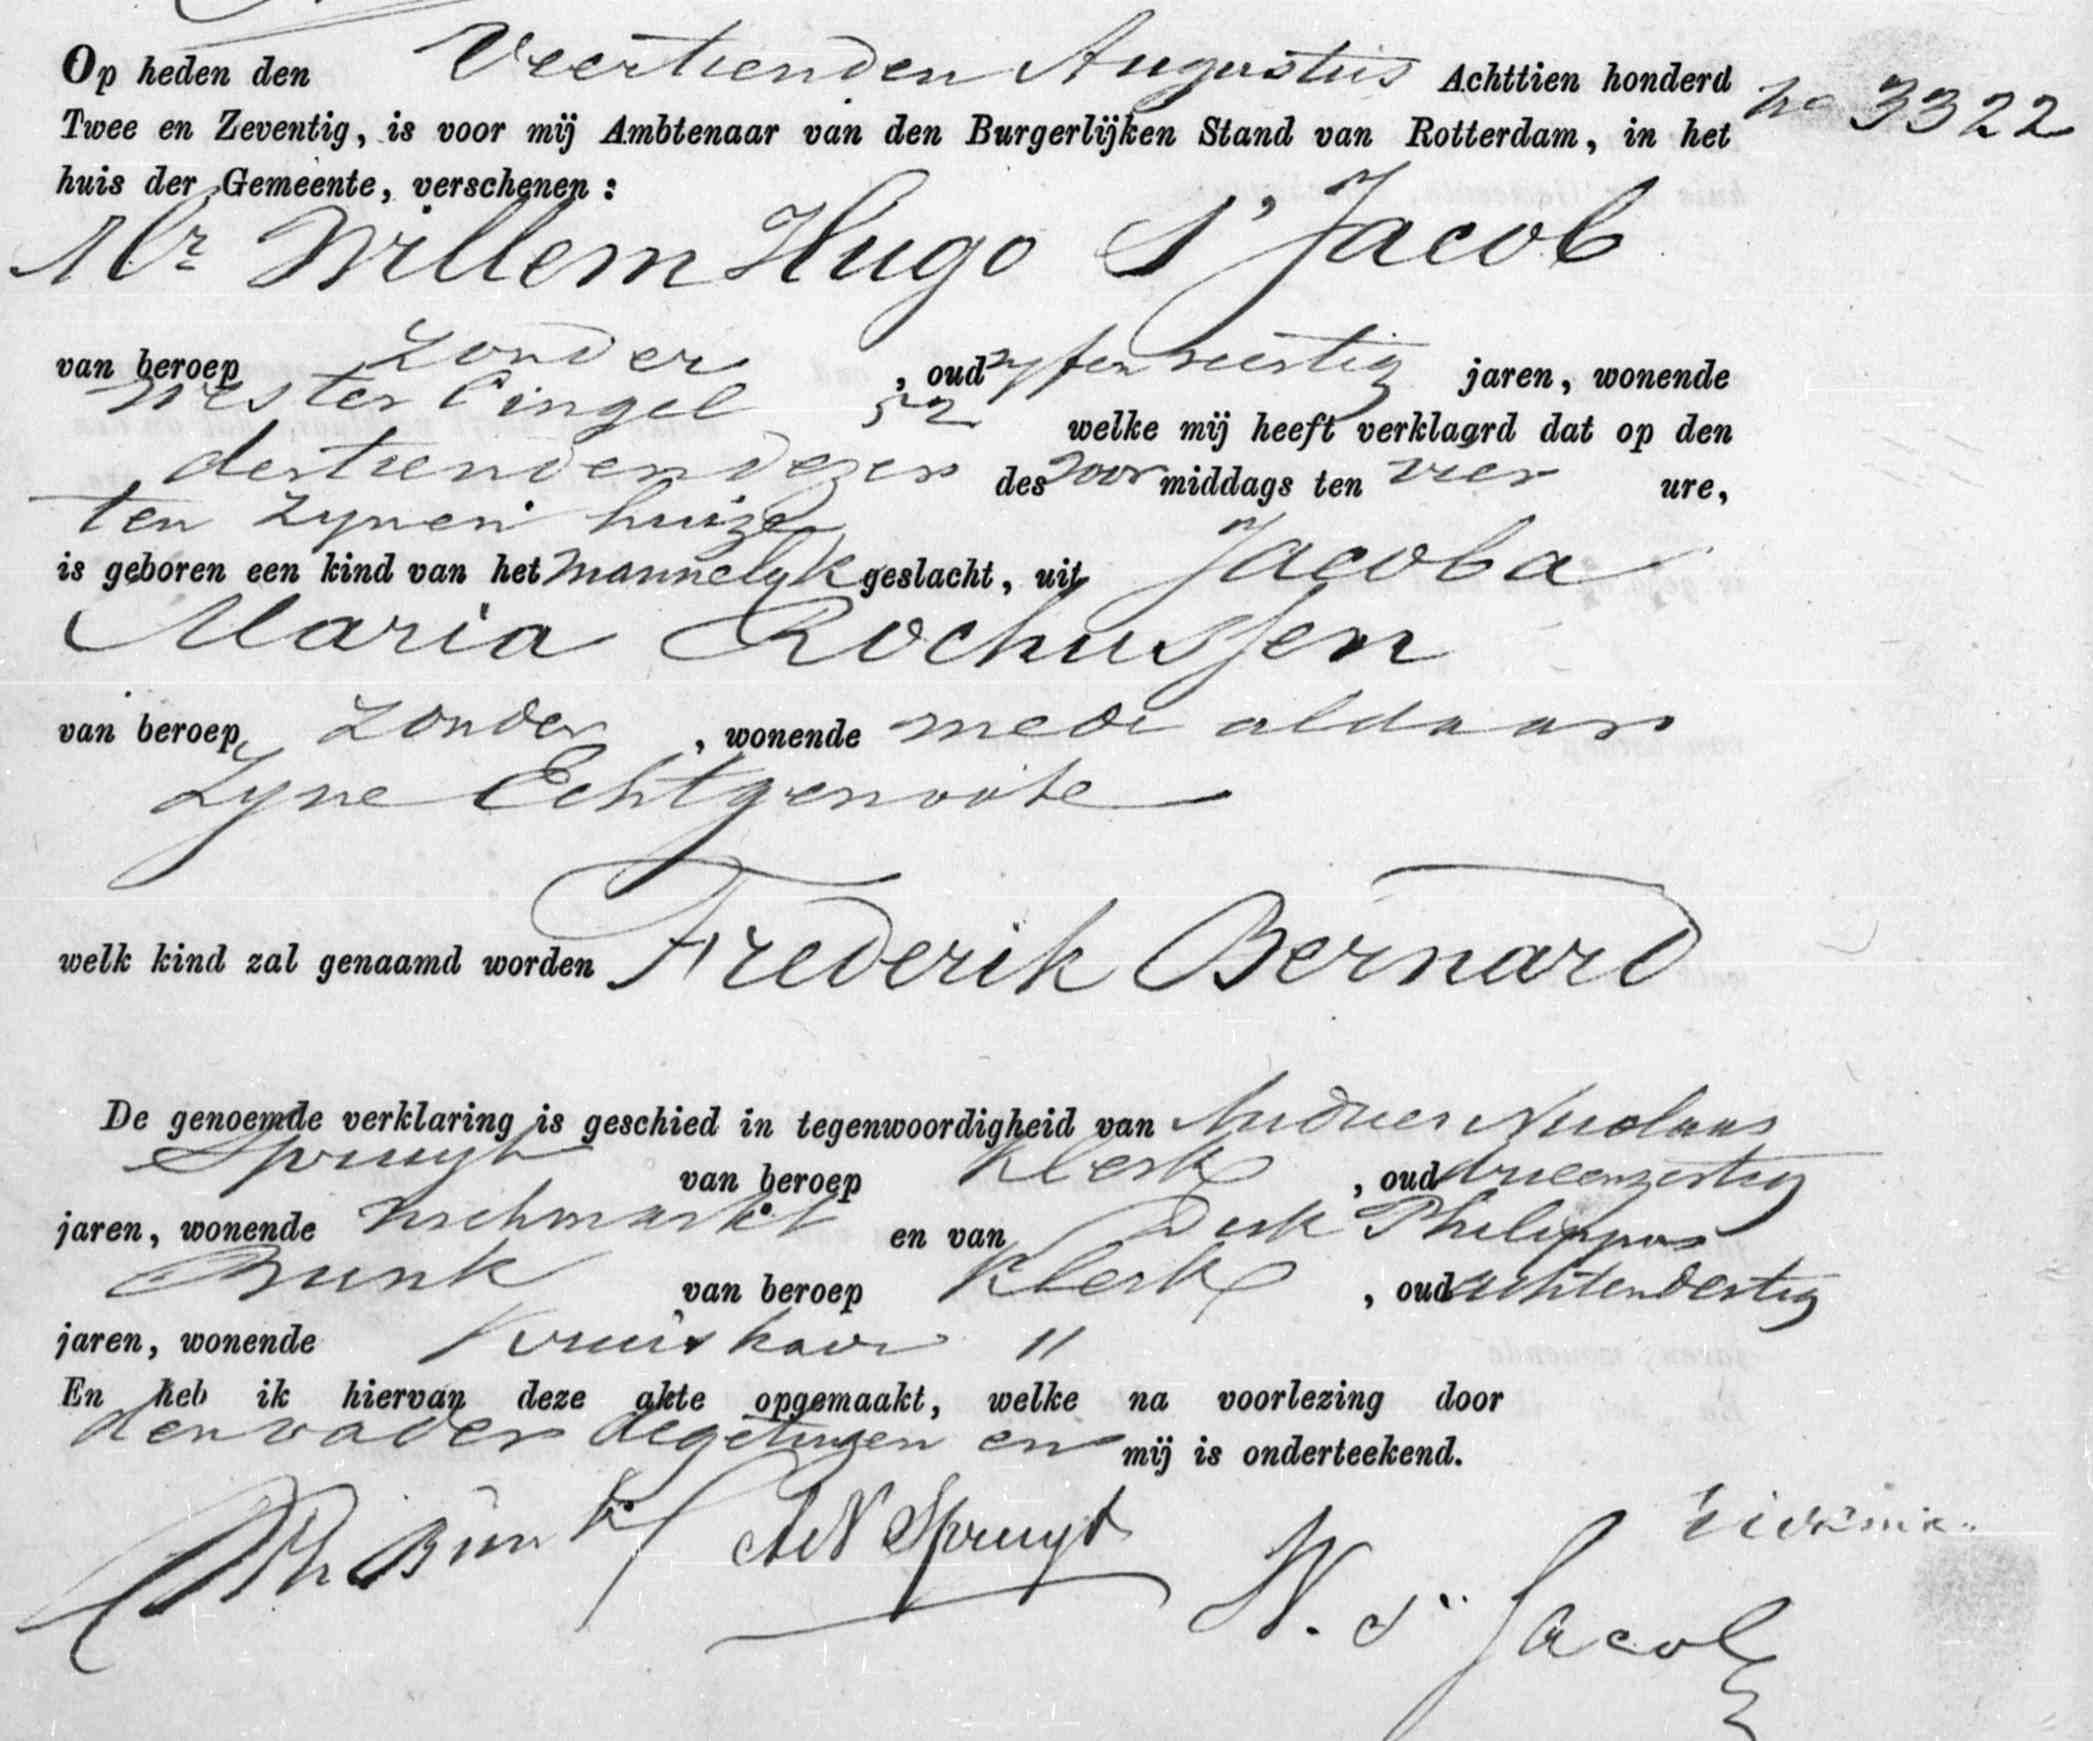 Op heden den Veertienden Augustus Achttien honderd
No 3322
Twee en Zeventig, is voor mij Ambtenaar van den Burgerlijken Stand van Rotterdam, in het
huis der Gemeente, verschenen:
Mr Willem Hugo s'Jacob
van beroep zonder, oud vyfenveertig jaren, wonende
Wester Cingel 52 welke mij heeft verklaard dat op den
dertienden dezer des voor middags ten vier ure,
ten zynen huize
is geboren een kind van het mannelyk geslacht, uit Jacoba
Maria Rochussen
van beroep zonder, wonende mede aldaar
Zyne Echtgenoote
welk kind zal genaamd worden Frederik Bernard
De genoemde verklaring is geschied in tegenwoordigheid van Andries Nicolaas
Spruyt van beroep Klerk, oud drieenzestig
jaren, wonende vischmarkt en van Dirk Philippus
Bunk van beroep Klerk, oud achtendertig
jaren, wonende Kruiskade 11
En heb ik hiervan deze akte opgemaakt, welke na voorlezing door
den vader de getuigen en mij is onderteekend.
DPh Bunk AN Spruyt W. s'Jacob